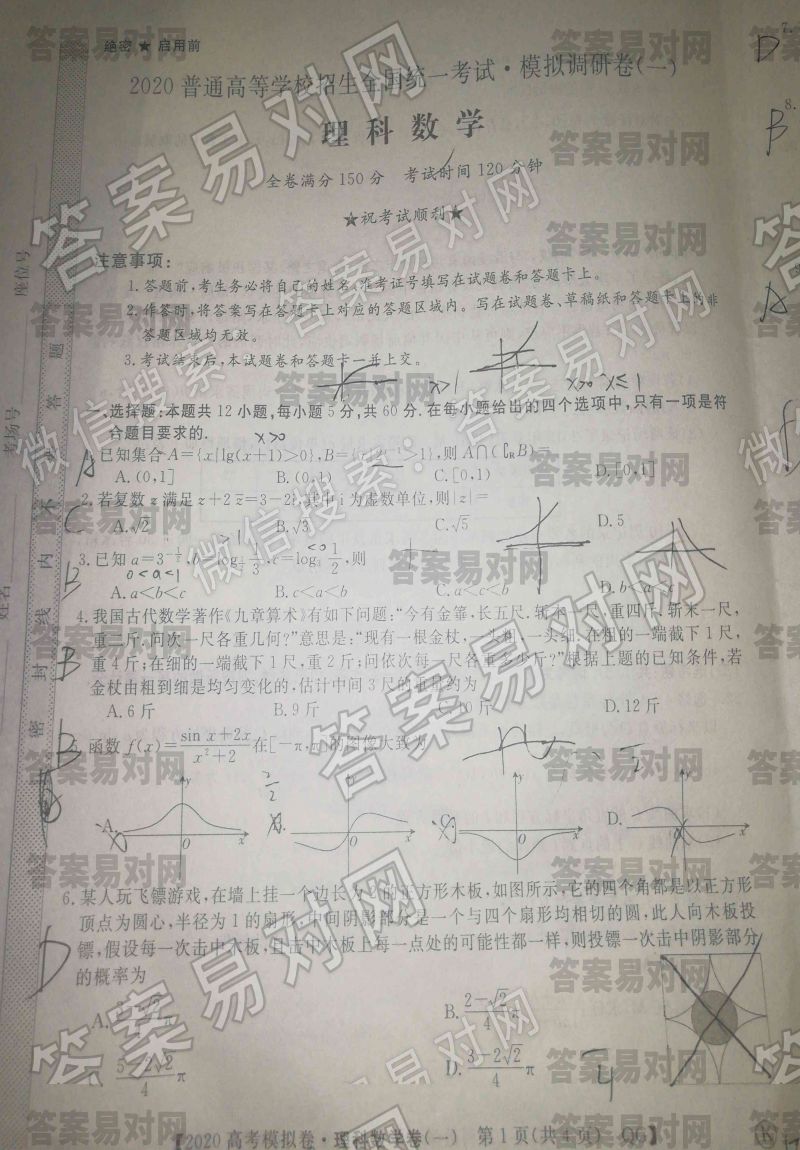 绝密★启用前
2020普通高等学校招生全国统一考试·模拟调研卷(一)
理科数学
全卷满分150分 考试时间120分钟
★祝考试顺利★
注意事项:
1.答题前,考生务必将自己的姓名、准考证号填写在试题卷和答题卡上。
2.作答时,将答案写在答题卡上对应的答题区域内。写在试题卷、草稿纸和答题卡上的非
答题区域均无效。
3.考试结束后,本试题卷和答题卡一并上交。
x>1
x>0 x≤1
一、选择题:本题共12小题,每小题5分,共60分.在每小题给出的四个选项中,只有一项是符
合题目要求的.
x>0
A
1.已知集合A={x|lg(x+1)>0},B={x|2 >1},则A∩(∁RB)=
A.(0,1] B.(0,1) C.[0,1) D.[0,1]
C
2.若复数z满足z+2z̄=3-2i,其中i为虚数单位,则|z|=
A.√2 B.√3 C.√5 D.5
B
3.已知a=3 ,b=log ,c=log 1/2,则
>1
<0
0<a<1
A.a<b<c B.c<a<b C.a<c<b D.b<a<c
B
4.我国古代数学著作《九章算术》有如下问题:“今有金箠,长五尺.斩本一尺,重四斤,斩末一尺,
重二斤,问次一尺各重几何?”意思是:“现有一根金杖,一头粗,一头细,在粗的一端截下1尺,
重4斤;在细的一端截下1尺,重2斤;问依次每一尺各重多少斤?”根据上题的已知条件,若
金杖由粗到细是均匀变化的,估计中间3尺的重量约为
A.6斤 B.9斤 C.10斤 D.12斤
B
函数f(x)=(sin x+2x)/(x²+2)在[-π,π]的图像大致为
A. B. C. D.
y O x
y O x
y O x
y O x
D
6.某人玩飞镖游戏,在墙上挂一个边长为2的正方形木板,如图所示,它的四个角都是以正方形
顶点为圆心,半径为1的扇形,中间阴影部分是一个与四个扇形均相切的圆,此人向木板投
镖,假设每一次击中木板,且击中木板上每一点处的可能性都一样,则投镖一次击中阴影部分
的概率为
A. π B.(2-√2)/4 π
(5-2√2)/4 π D.(3-2√2)/4 π
【2020高考模拟卷·理科数学卷(一) 第1页(共4页) QG】
7.
D
8.
B
A
座位号
考场号
姓名
密 封 线 内 不 答 题
微信搜索:答案易对网
答案易对网